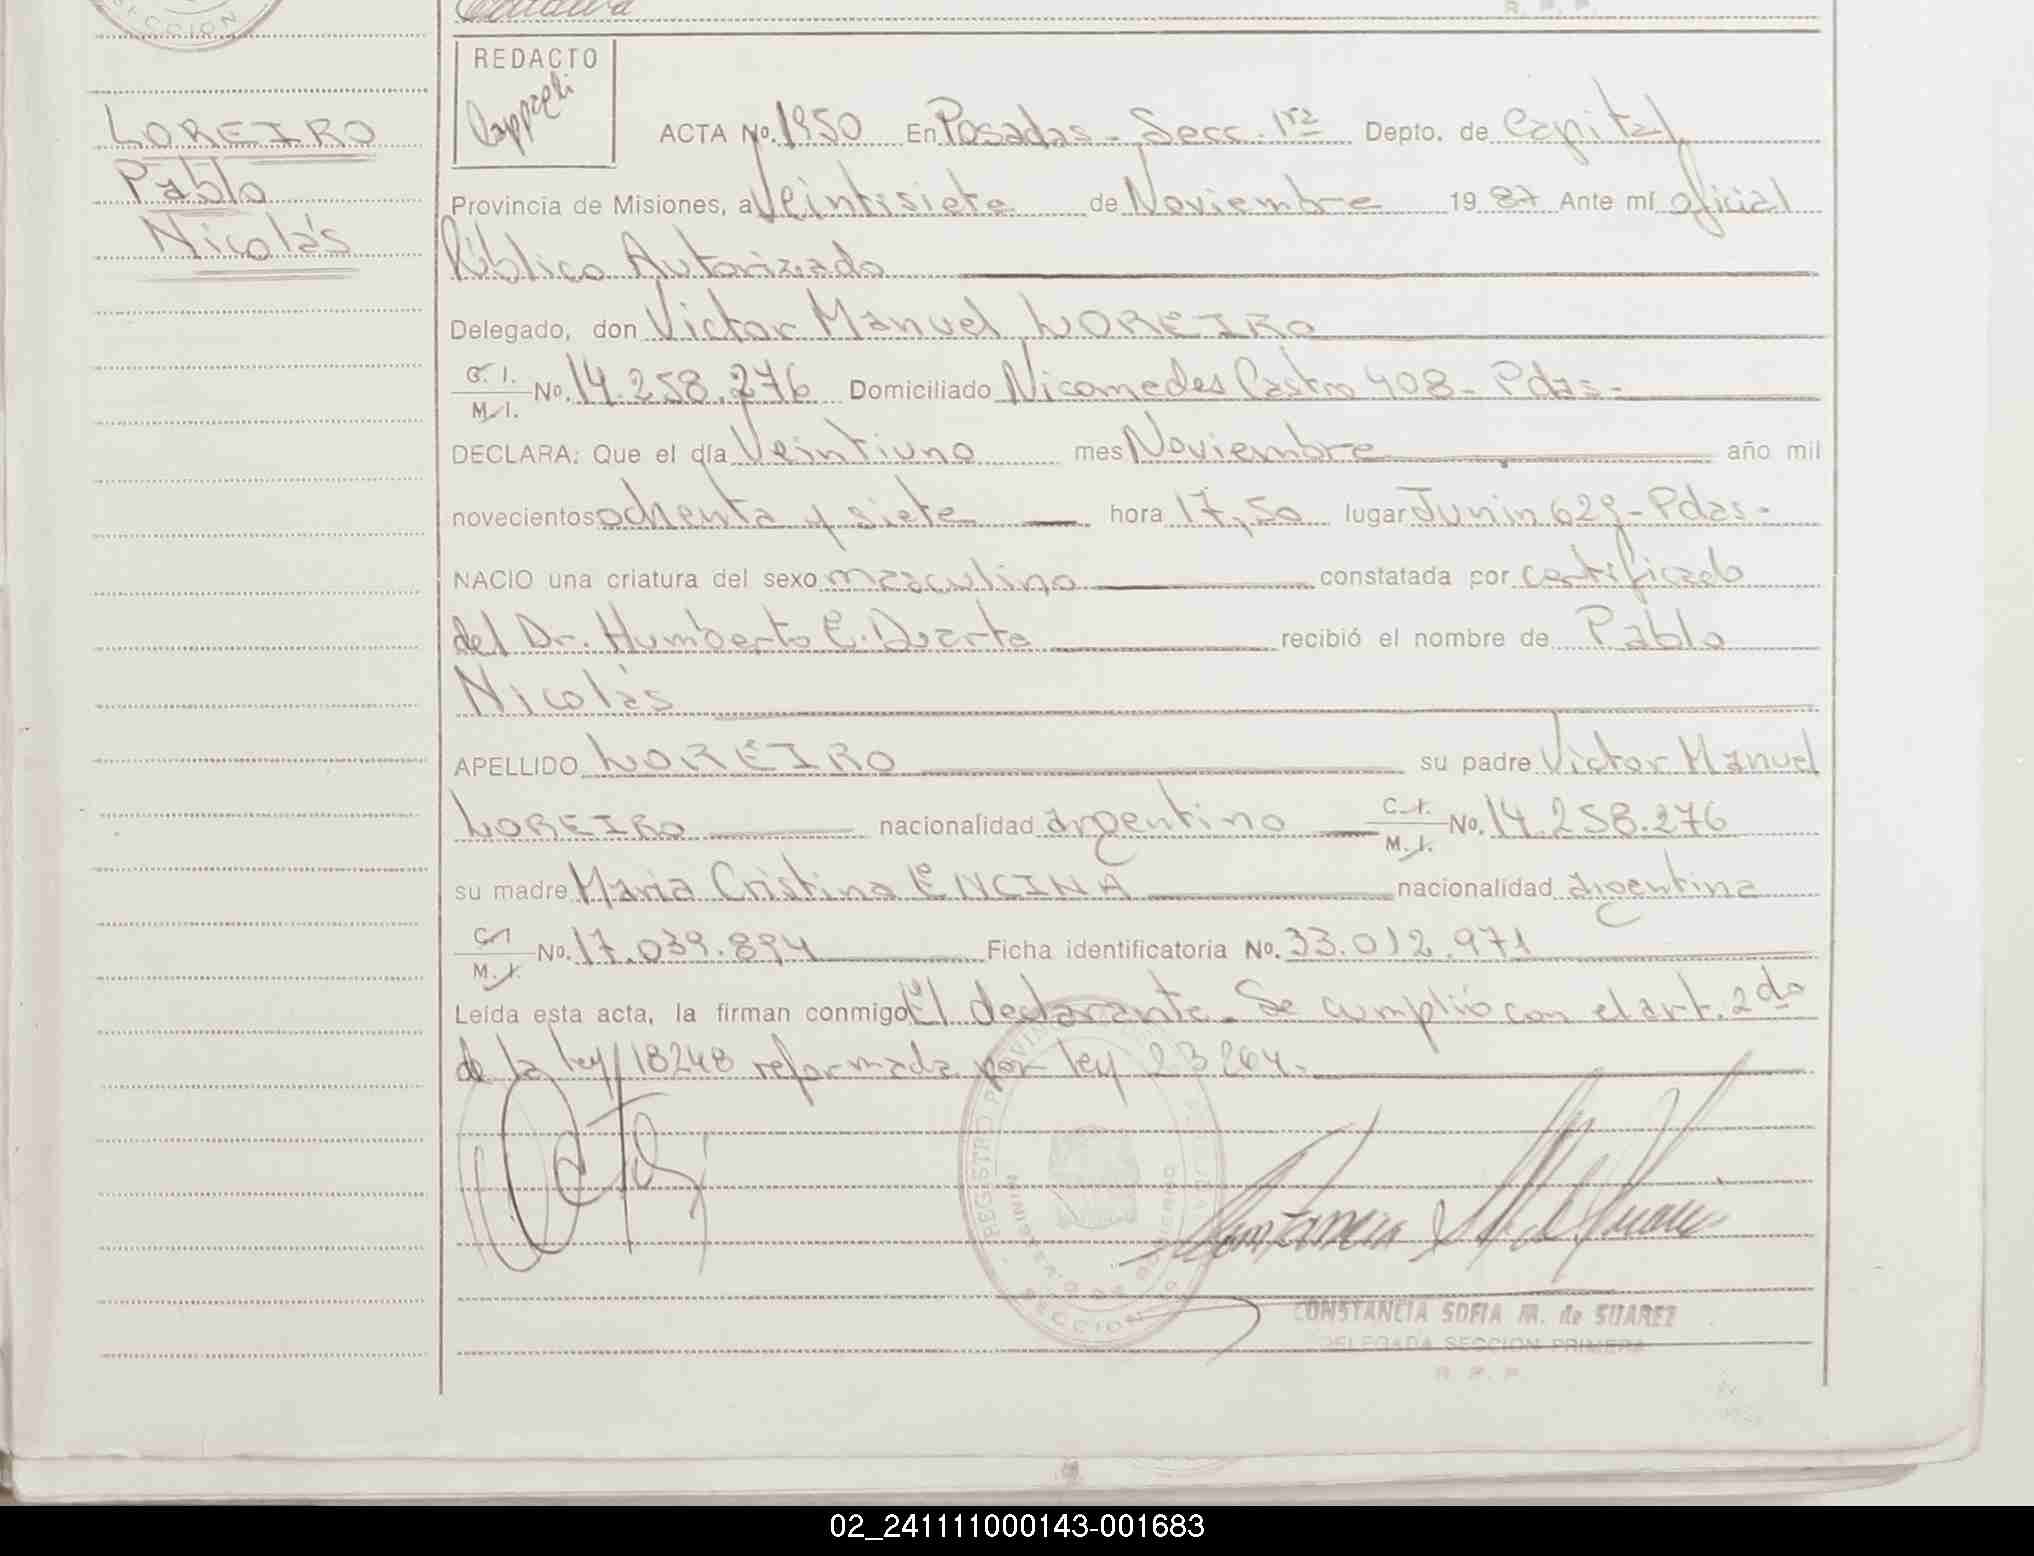 SECCION
R. P. P.
REDACTO
LOREIRO
Pablo
Nicolás
ACTA No. 1950 En Posadas - Secc. 1ra Depto. de Capital
Provincia de Misiones, a Veintisiete de Noviembre 1987 Ante mí oficial
Público Autorizado
Delegado, don Victor Manuel LOREIRO
C. I.
M. I. No. 14.258.276 Domiciliado Nicomedes Castro 408 - Pdas -
DECLARA: Que el día Veintiuno mes Noviembre año mil
novecientos ochenta y siete hora 17,50 lugar Junin 629 - Pdas -
NACIO una criatura del sexo masculino constatada por certificado
del Dr. Humberto E. Duarte recibió el nombre de Pablo
Nicolás
APELLIDO LOREIRO su padre Victor Manuel
LOREIRO nacionalidad argentino C. I.
M. I. No. 14.258.276
su madre Maria Cristina ENCINA nacionalidad argentina
C. I.
M. I. No. 17.039.894 Ficha identificatoria No. 33.012.971
Leída esta acta, la firman conmigo El declarante - Se cumplió con el art. 2do
de la ley 18248 reformada por ley 23264 -
SECCION
CONSTANCIA SOFIA M. de SUAREZ
DELEGADA SECCION PRIMERA
R. P. P.
02_241111000143-001683